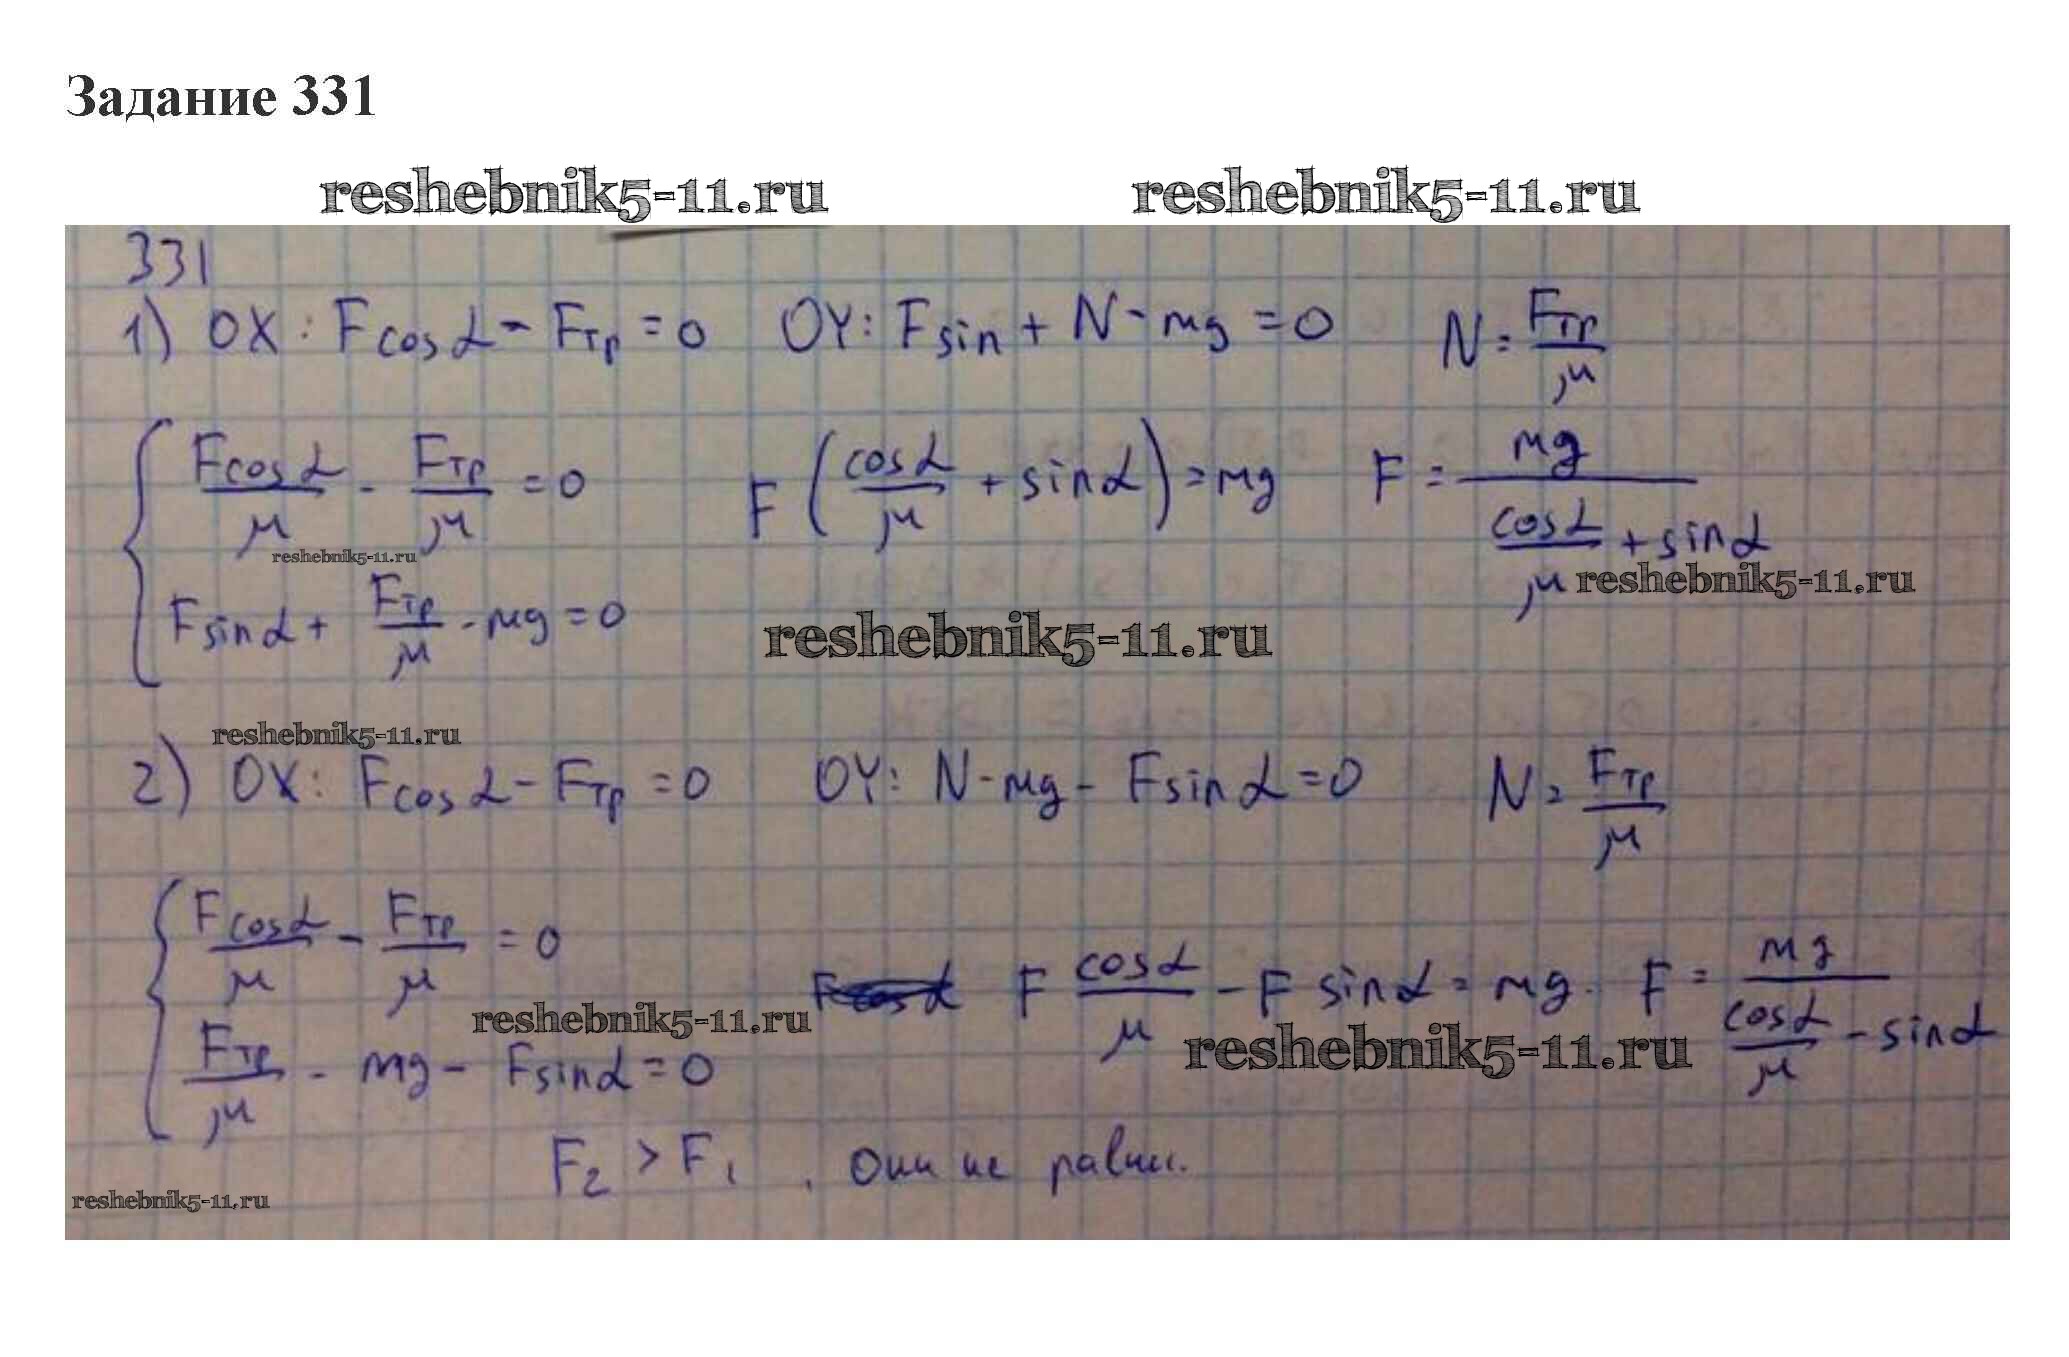 Задание 331
reshebnik5-11.ru reshebnik5-11.ru
331
1) OX: Fcosα - Fтр = 0 OY: Fsin + N - mg = 0 N = Fтр/μ
{ Fcosα/μ - Fтр/μ = 0 F (cosα/μ + sinα) = mg F = mg/(cosα/μ + sinα)
reshebnik5-11.ru reshebnik5-11.ru
Fsinα + Fтр/μ - mg = 0
reshebnik5-11.ru
reshebnik5-11.ru
2) OX: Fcosα - Fтр = 0 OY: N - mg - Fsinα = 0 N = Fтр/μ
{ Fcosα/μ - Fтр/μ = 0 F cosα/μ - F sinα = mg. F = mg/(cosα/μ - sinα)
reshebnik5-11.ru reshebnik5-11.ru
Fтр/μ - mg - Fsinα = 0
F₂ > F₁, они не равны.
reshebnik5-11.ru